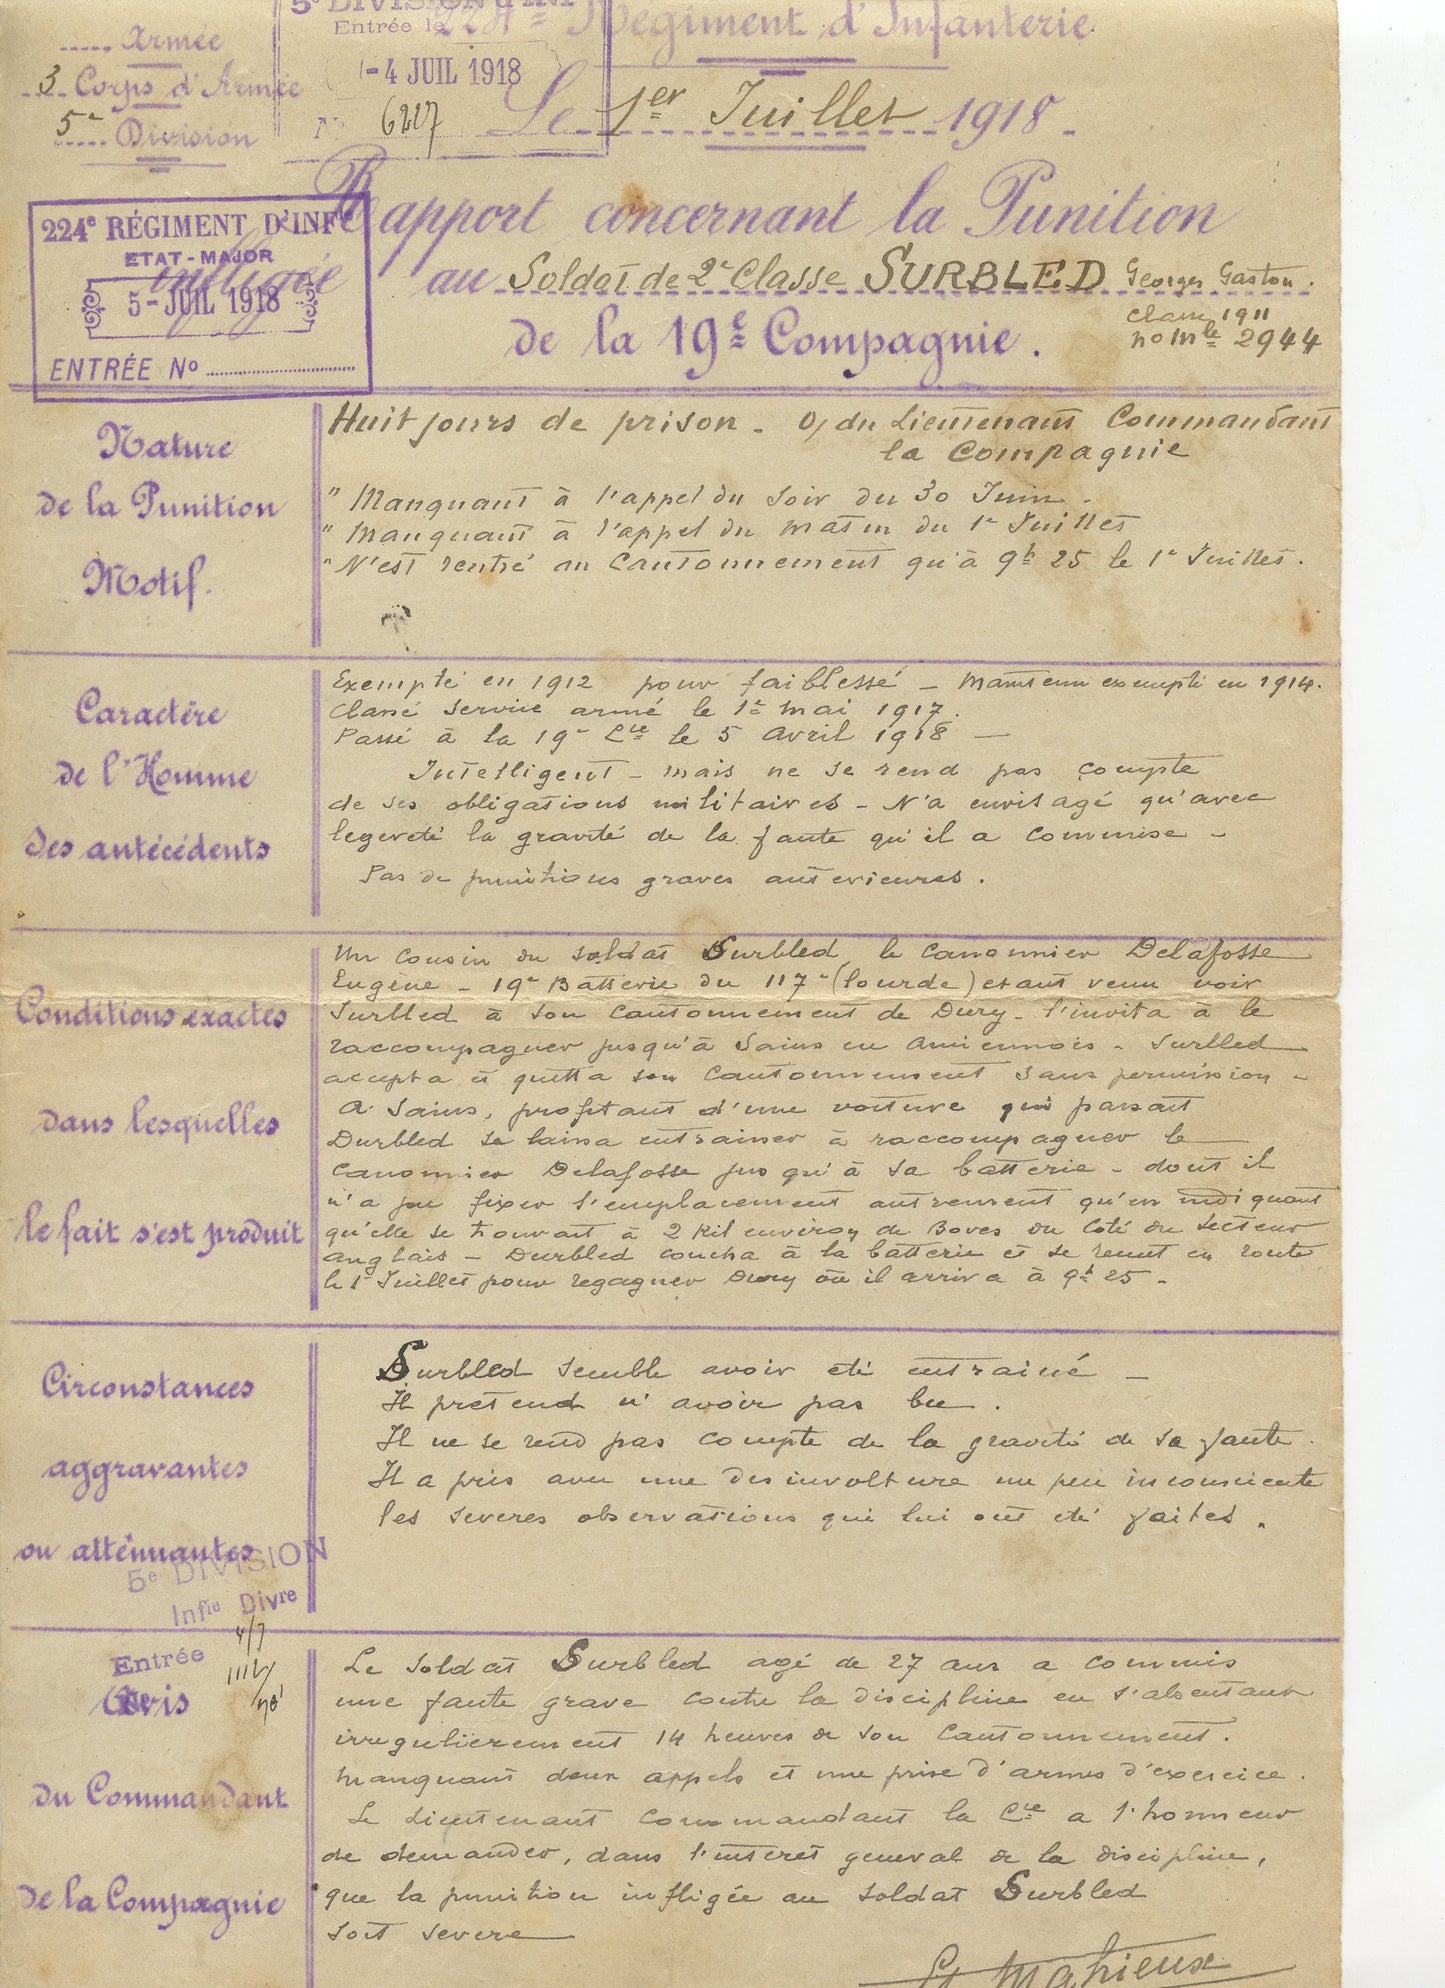 ..... Armée
3 Corps d'Armée
5e Division
5e DIVISION d'INF
Entrée le
- 4 JUIL 1918
No 6217
224e Régiment d'Infanterie
Le 1er Juillet 1918
Rapport concernant la Punition
infligée au Soldat de 2e Classe SURBLED Georges Gaston.
classe 1911
no mle 2944
de la 19e Compagnie.
224e RÉGIMENT D'INFie
ETAT-MAJOR
5 - JUIL 1918
ENTRÉE No
Nature
de la Punition
Motif.
Huit jours de prison - O/ du Lieutenant Commandant
la Compagnie
" Manquant à l'appel du soir du 30 Juin.
" Manquant à l'appel du matin du 1e Juillet
" N'est rentré au Cantonnement qu'à 9h 25 le 1e Juillet.
Caractère
de l'Homme
Ses antécédents
Exempté en 1912 pour faiblesse - Maintenu exempté en 1914.
Classé service armé le 1e Mai 1917.
Passé à la 19e Cie le 5 Avril 1918 —
Intelligent - mais ne se rend pas compte
de ses obligations militaires - N'a envisagé qu'avec
legereté la gravité de la faute qu'il a commise -
Pas de punitions graves anterieures.
Conditions exactes
dans lesquelles
le fait s'est produit
Un cousin du soldat Surbled le canonnier Delafosse
Eugène - 19e Batterie du 117e (lourde) etant venu voir
Surbled à son cantonnement de Dury - l'invita à le
raccompagner jusqu'à Sains en Amiennois - Surbled
accepta et quitta son cantonnement sans permission -
A Sains, profitant d'une voiture qui passait
Durbled se laissa entrainer à raccompagner le
canonnier Delafosse jusqu'à sa batterie - dont il
n'a pu fixer l'emplacement autrement qu'en indiquant
qu'elle se trouvait à 2 Kil environ de Boves du Coté du Secteur
anglais - Durbled coucha à la batterie et se remit en route
le 1e Juillet pour regagner Dury où il arriva à 9h 25 -
Circonstances
aggravantes
ou atténuantes
Surbled semble avoir été entrainé —
Il pretend n'avoir pas bu.
Il ne se rend pas compte de la gravité de sa faute.
Il a pris avec une desinvolture un peu inconsciente
les severes observations qui lui ont été faites.
5e DIVISION
Infie Divre
4/7
Entrée
Avis
du Commandant
de la Compagnie
Le soldat Surbled agé de 27 ans a commis
une faute grave contre la discipline en s'absentant
irregulièrement 14 heures de son Cantonnement.
Manquant deux appels et une prise d'armes d'exercice.
Le Lieutenant commandant la Cie a l'honneur
de demander, dans l'interet general de la discipline,
que la punition infligée au soldat Surbled
soit severe
Mahieux